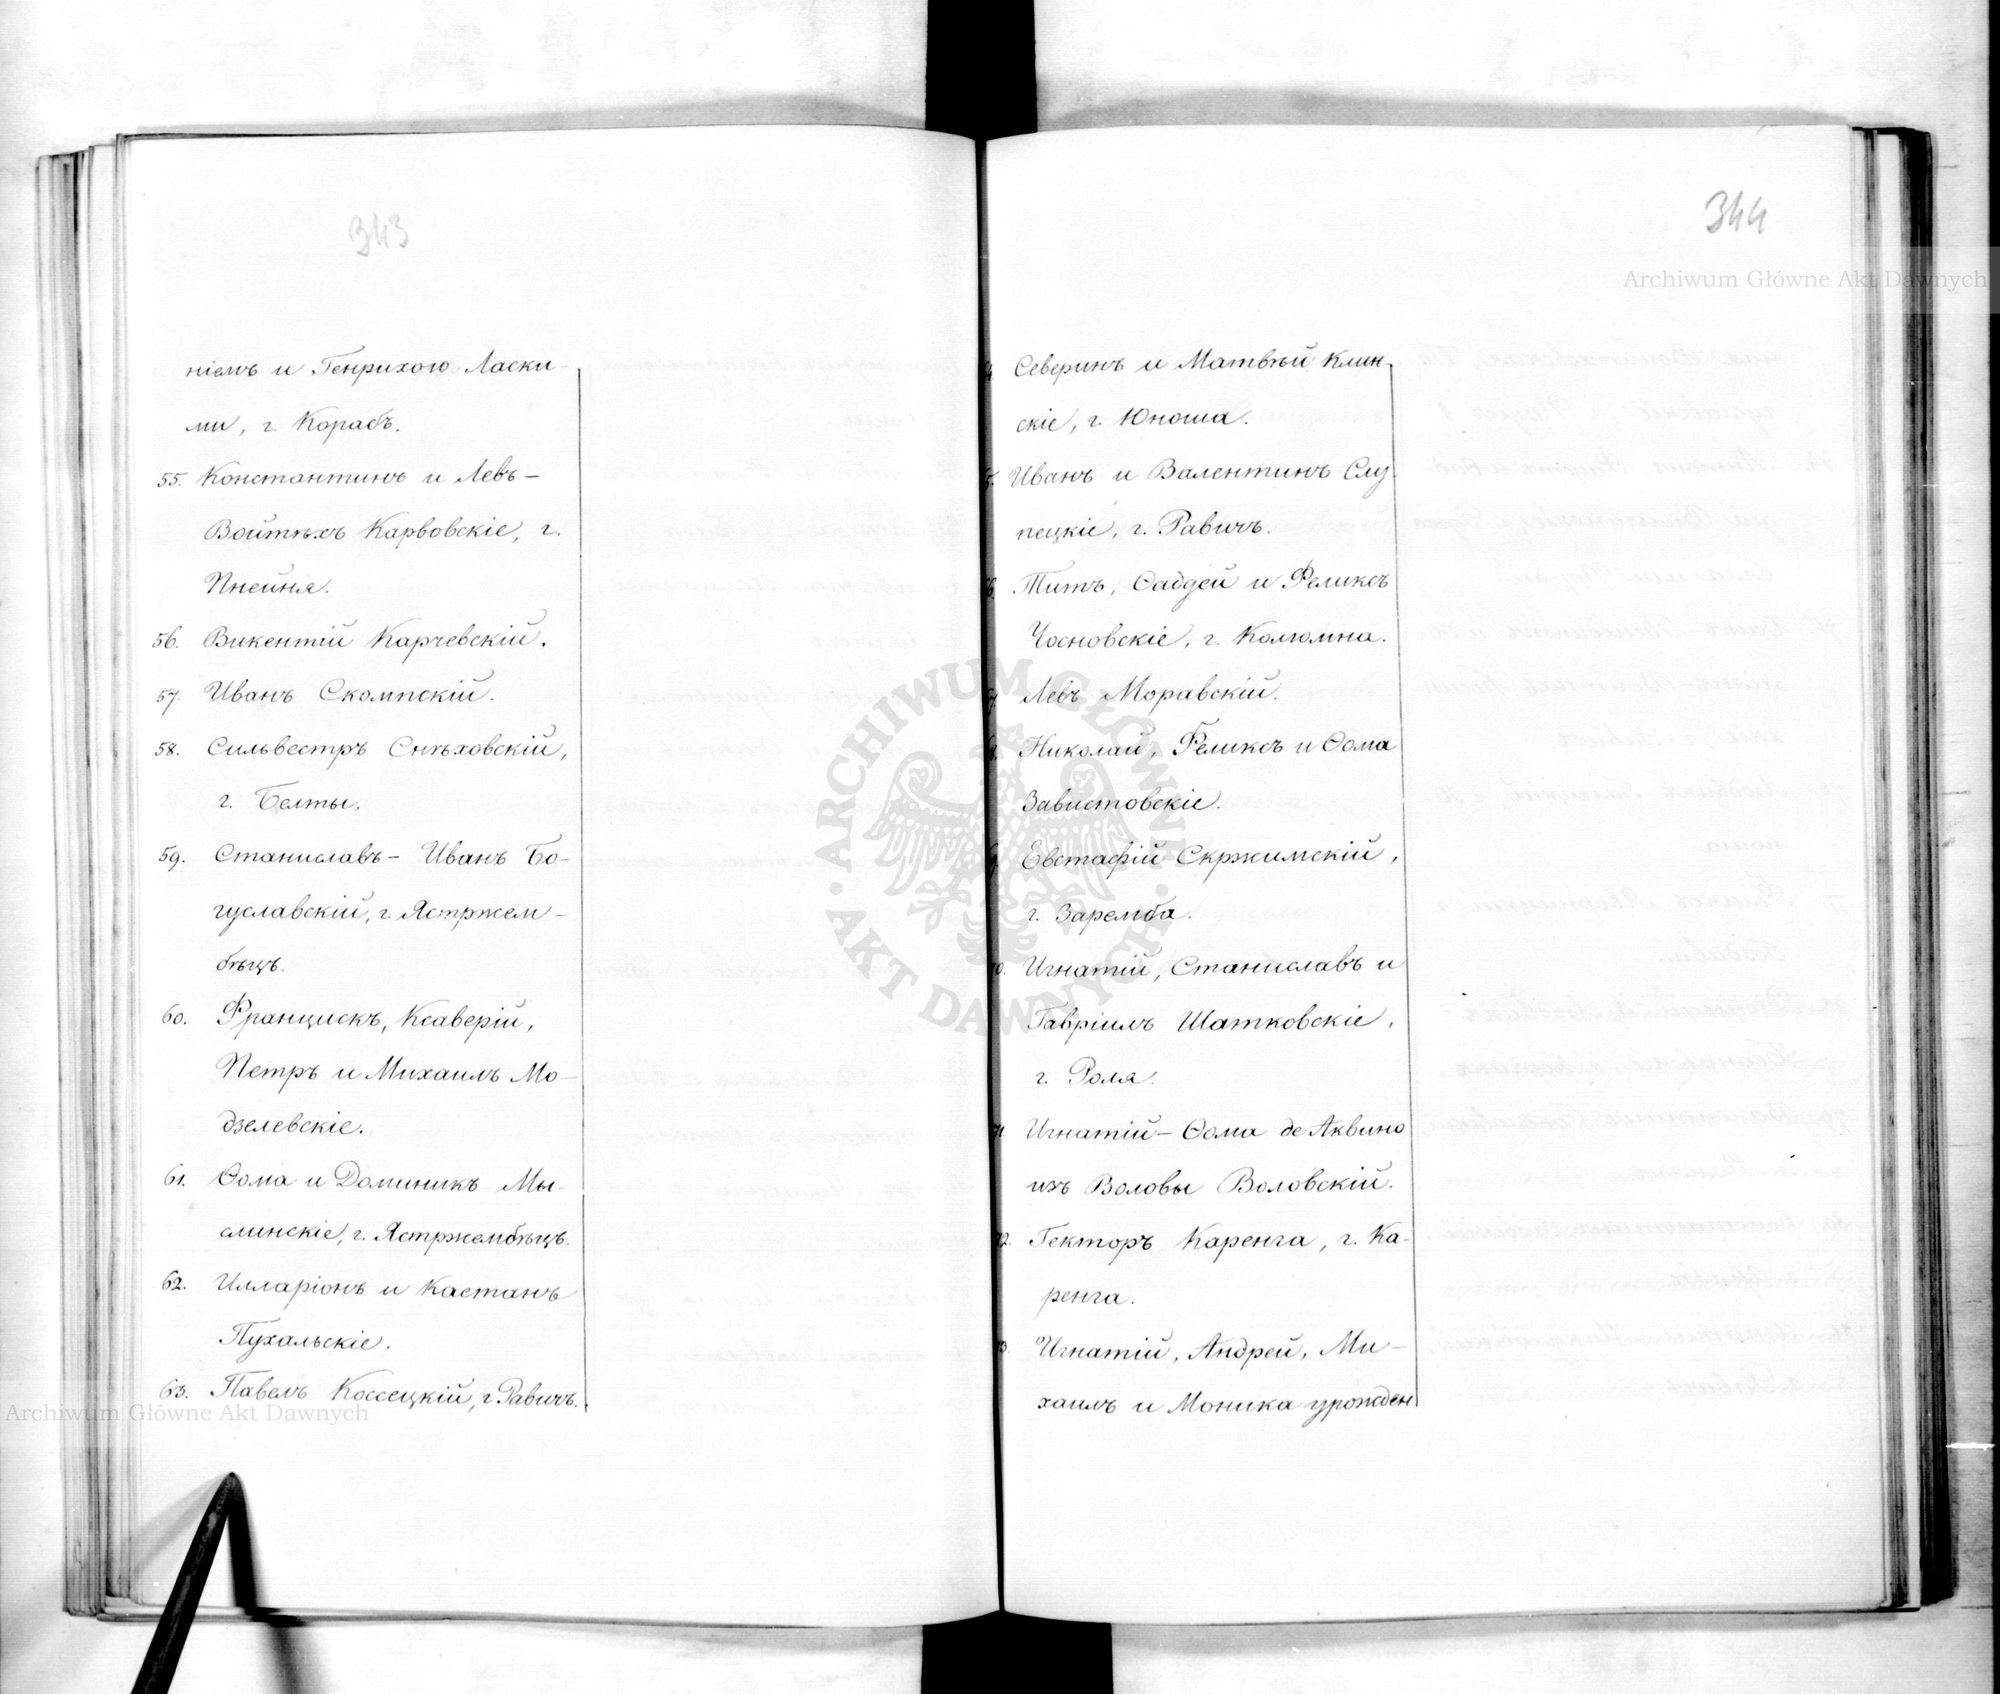 343
ніемъ и Генрихою Ласки-
ми, г. Корабъ.
55. Константинъ и Левъ-
Войтѣхъ Карвовскіе, г.
Пнейня.
56. Викентій Карчевскій.
57. Иванъ Скомпскій.
58. Сильвестръ Снѣховскій,
г. Белты.
59. Станиславъ- Иванъ Бо-
гуславскій, г. Ястржем-
бѣцъ.
60. Францискъ, Ксаверій,
Петръ и Михаилъ Мо-
дзелевскіе.
61. Ѳома и Доминикъ Мы-
слинскіе, г. Ястржембѣцъ.
62. Илларіонъ и Каетанъ
Пухальскіе.
63. Павелъ Коссецкій, г. Равичъ.
Archiwum Główne Akt Dawnych
344
Archiwum Główne Akt Dawnych
4. Северинъ и Матвѣй Клин-
скіе, г. Юноша.
5. Иванъ и Валентинъ Слу-
пецкіе, г. Равичъ.
6. Титъ, Ѳаддей и Феликсъ
Чосновскіе, г. Колюмна.
Левъ Моравскій.
8. Николай, Феликсъ и Ѳома
Завистовскіе.
9. Евстафій Скржимскій,
г. Заремба.
0. Игнатій, Станиславъ и
Гавріилъ Шатковскіе,
г. Роля.
1. Игнатій- Ѳома де Аквино
изъ Воловы Воловскій.
2. Гекторъ Каренга, г. Ка-
ренга.
3. Игнатій, Андрей, Ми-
хаилъ и Моника урожден
ARCHIWUM GŁÓWNE AKT DAWNYCH